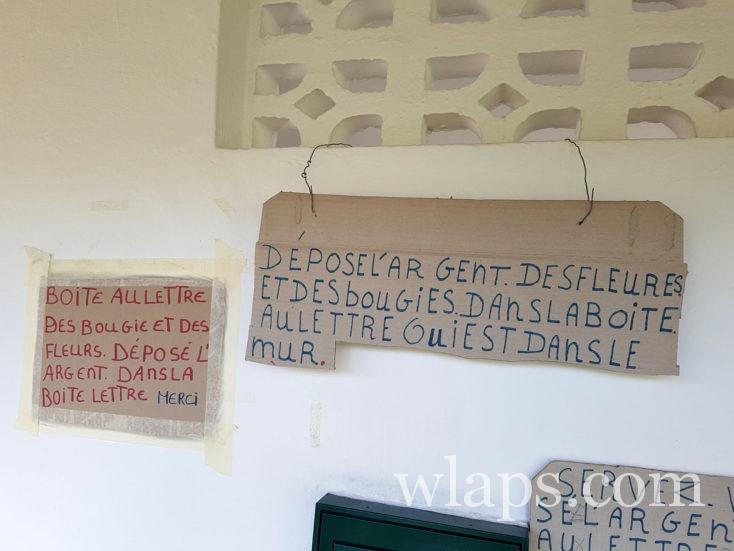 BOITE AU LETTRE
DES BOUGIE ET DES
FLEURS. DÉPOSÉ L'
ARGENT. DANS LA
BOITE LETTRE MERCI
DÉPOSE L'ARGENT. DES FLEURES
ET DES BOUGIES. DANS LA BOITE.
AU LETTRE OUI EST DANS LE
MUR.
SERVEZ-V
SÉ L'ARGEN
AU LETTRE
wlaps.com